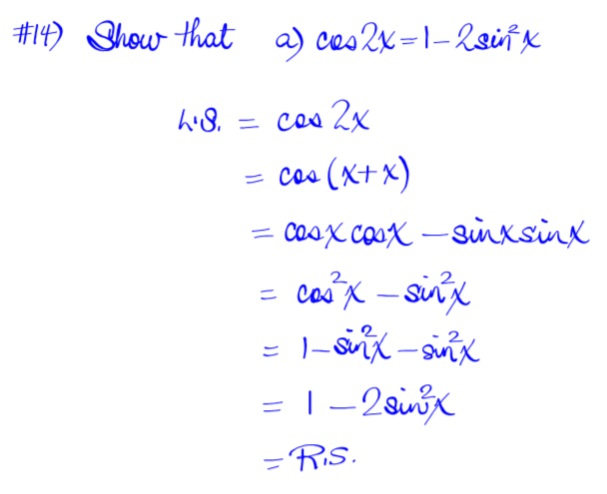 #14) Show that a) cos2x=1-2sin²x
L.S. = cos 2x
= cos (x+x)
= cosx cosx - sinx sinx
= cos²x - sin²x
= 1-sin²x - sin²x
= 1 - 2sin²x
= R.S.